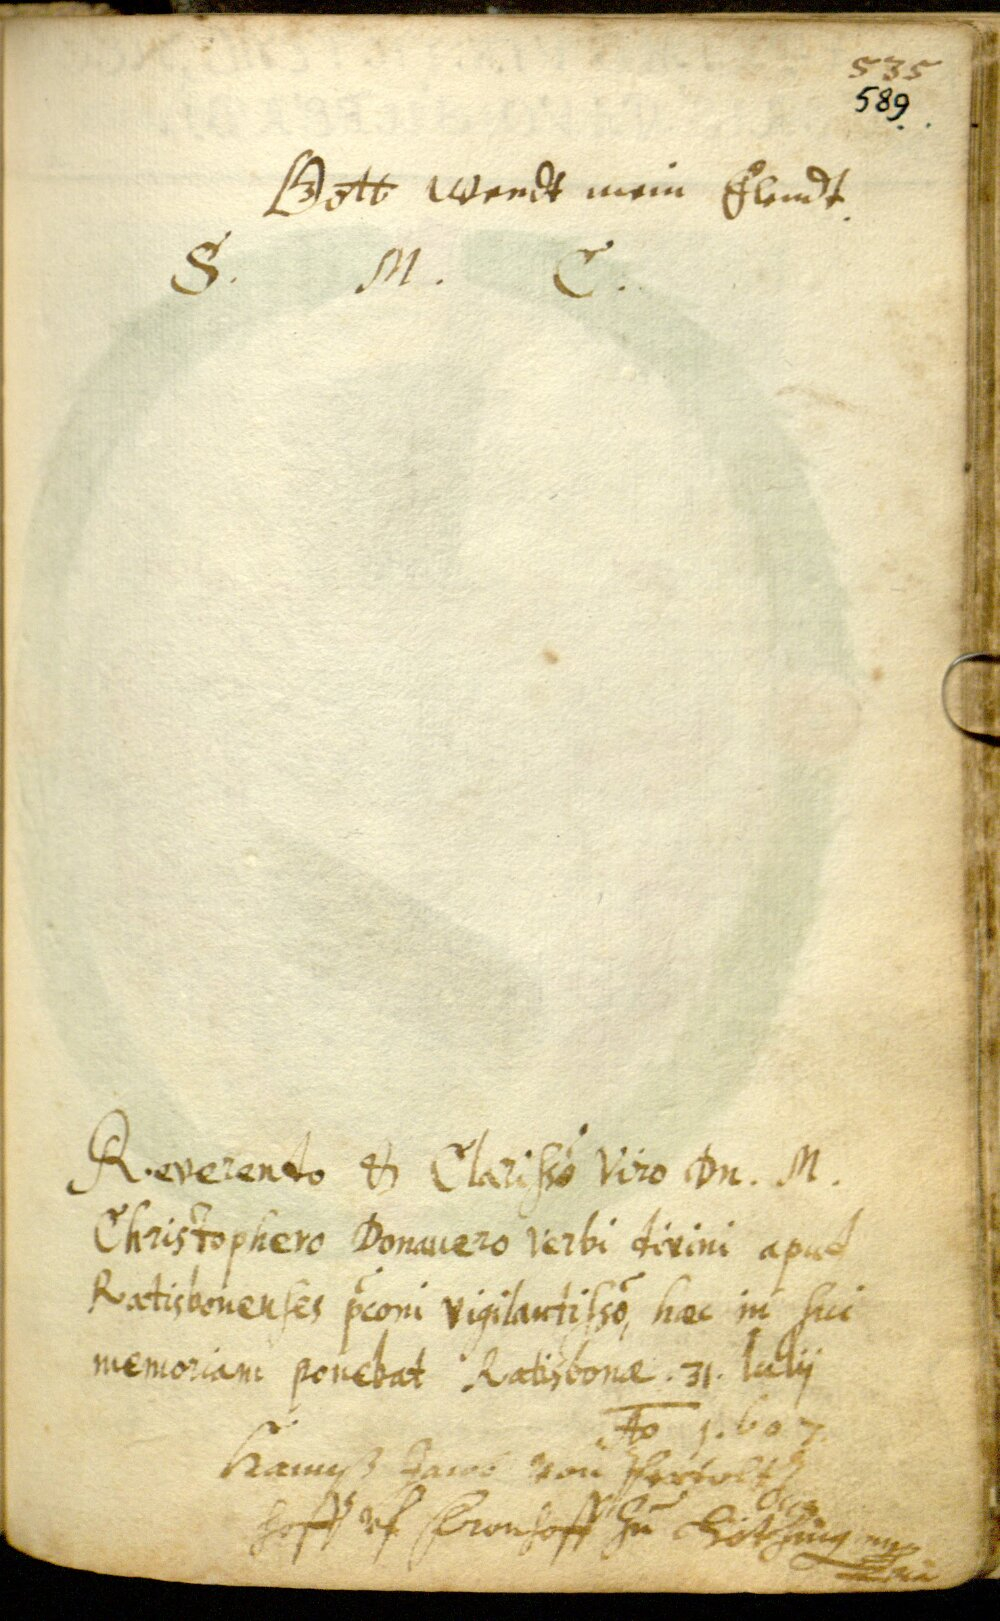 535
589.
Gott wendt mein Elendt.
S. M. C.
Reverendo & Clarissõ Viro Dn. M.
Christophero Donavero Verbi divini apud
Ratisbonenses p̃coni vigilantissõ, haec in sui
memoriam ponebat Ratisbonae. 31. Iulij
Ao 1.607.
Hannß Jacob von
hoff uf Cronhoff zu